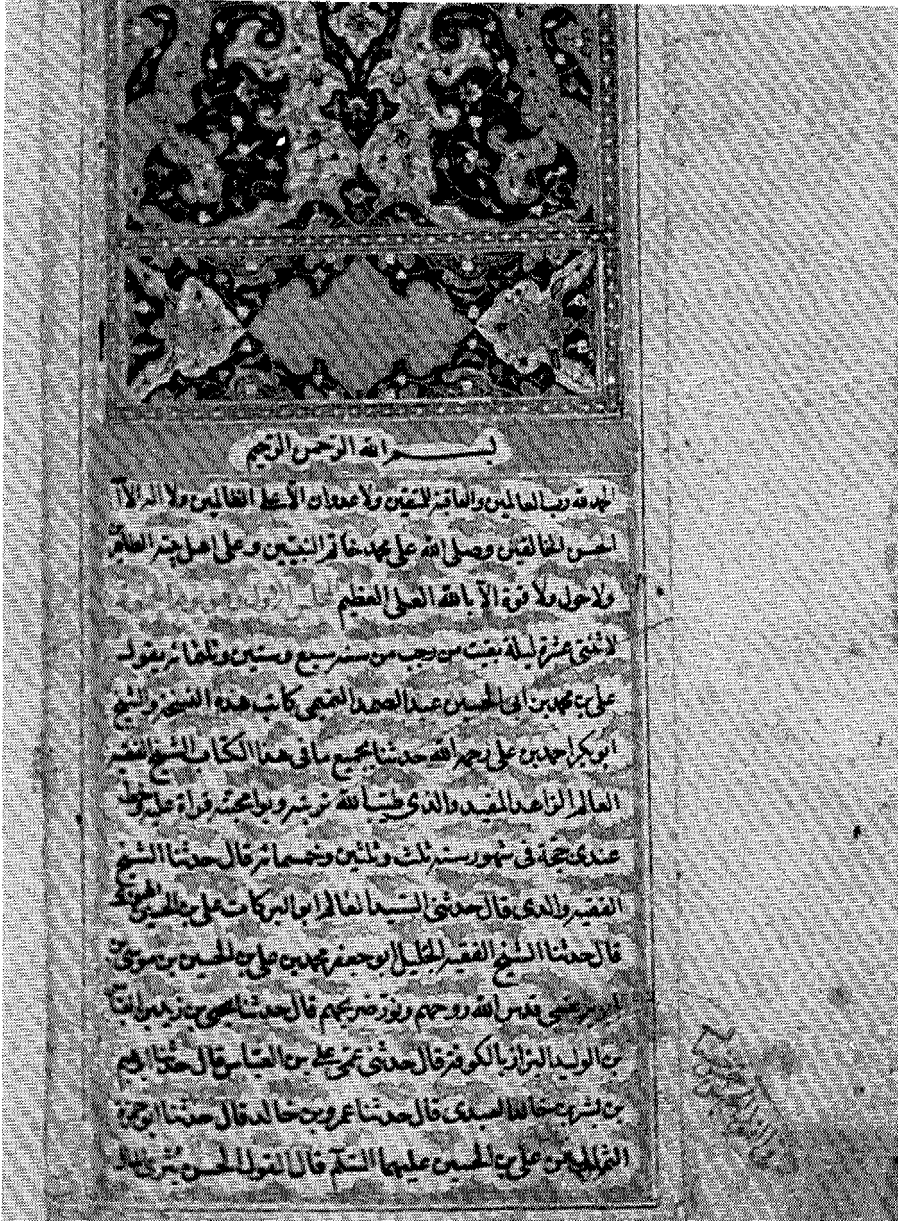 بسم الله الرحمن الرحيم
الحمد لله رب العالمين والعاقبة للمتقين ولا عدوان الا على الظالمين ولا اله الا الله
احسن الخالقين وصلى الله على محمد خاتم النبيين وعلى اهل بيته الطاهرين
ولا حول ولا قوة الا بالله العلى العظيم
لاثنتى عشرة ليلة بقيت من رجب من سنة سبع وستين وثلثمائة يقول
على بن محمد بن ابى الحسين عبد الصمد التميمى كاتب هذه النسخة والشيخ
ابو بكر احمد بن على رحمه الله حدثنا بجميع ما فى هذا الكتاب الشيخ الفقيه
العالم الزاهد المفيد والدى طيب الله تربته وبوأ جنته قراة عليه وخطه
عندى حجة فى شهور سنة ثلث وثلثين وخمسمائة قال حدثنا الشيخ
الفقيه والدى قال حدثنى السيد العالم ابو البركات على بن الحسين
قال حدثنا الشيخ الفقيه الجليل ابو جعفر محمد بن على بن الحسين بن موسى بن
قدس الله روحهم ونور ضريحهم قال حدثنا يحيى بن زيد بن العباس
بن الوليد البزاز بالكوفة قال حدثنى عمى على بن العباس قال حدثنا ابرهيم
بن بشر بن خالد العبدى قال حدثنا عمرو بن خالد قال حدثنا ابو حمزة
الثمالى عن على بن الحسين عليهما السلم قال القول الحسن يثرى المال